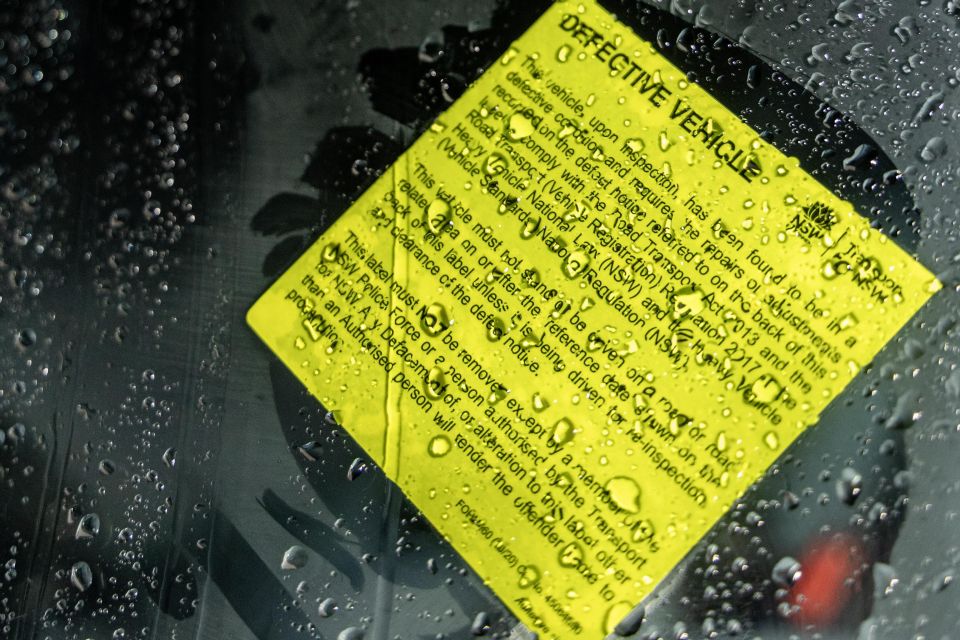 DEFECTIVE VEHICLE
NSW
Transport
for NSW
This vehicle, upon inspection, has been found to be in a
defective condition and requires the repairs or adjustments
recorded on the defect notice referred to on the back of this
label to comply with the Road Transport Act 2013 and the
Road Transport (Vehicle Registration) Regulation 2017 or the
Heavy Vehicle National Law (NSW) and Heavy Vehicle
(Vehicle Standards) National Regulation (NSW).
This vehicle must not stand or be driven on a road or road
related area on or after the reference date shown on the
back of this label unless it is being driven for re-inspection
and clearance of the defect notice.
This label must NOT be removed except by a member of the
NSW Police Force or a person authorised by the Transport
for NSW. Any Defacement of, or alteration to this label other
than an Authorised person will render the offender liable to
prosecution.